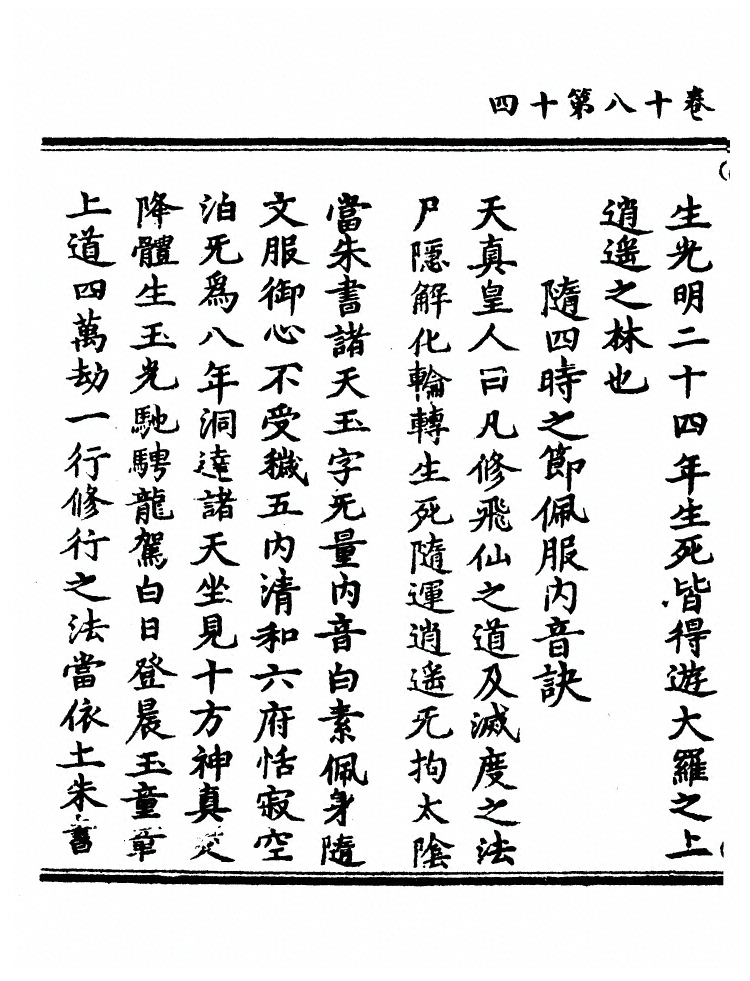 卷十八第十四
生光明二十四年生死皆得遊大羅之上
逍遥之林也
隨四時之節佩服内音訣
天真皇人曰凡修飛仙之道及滅度之法
尸隱解化輪轉生死隨運逍遥死拘太陰
當朱書諸天玉字无量内音白素佩身隨
文服御心不受穢五内清和六府恬寂空
泊无爲八年洞達諸天坐見十方神真
降體生玉光馳騁龍駕白日登晨玉童章
上道四萬劫一行修行之法當依土朱書